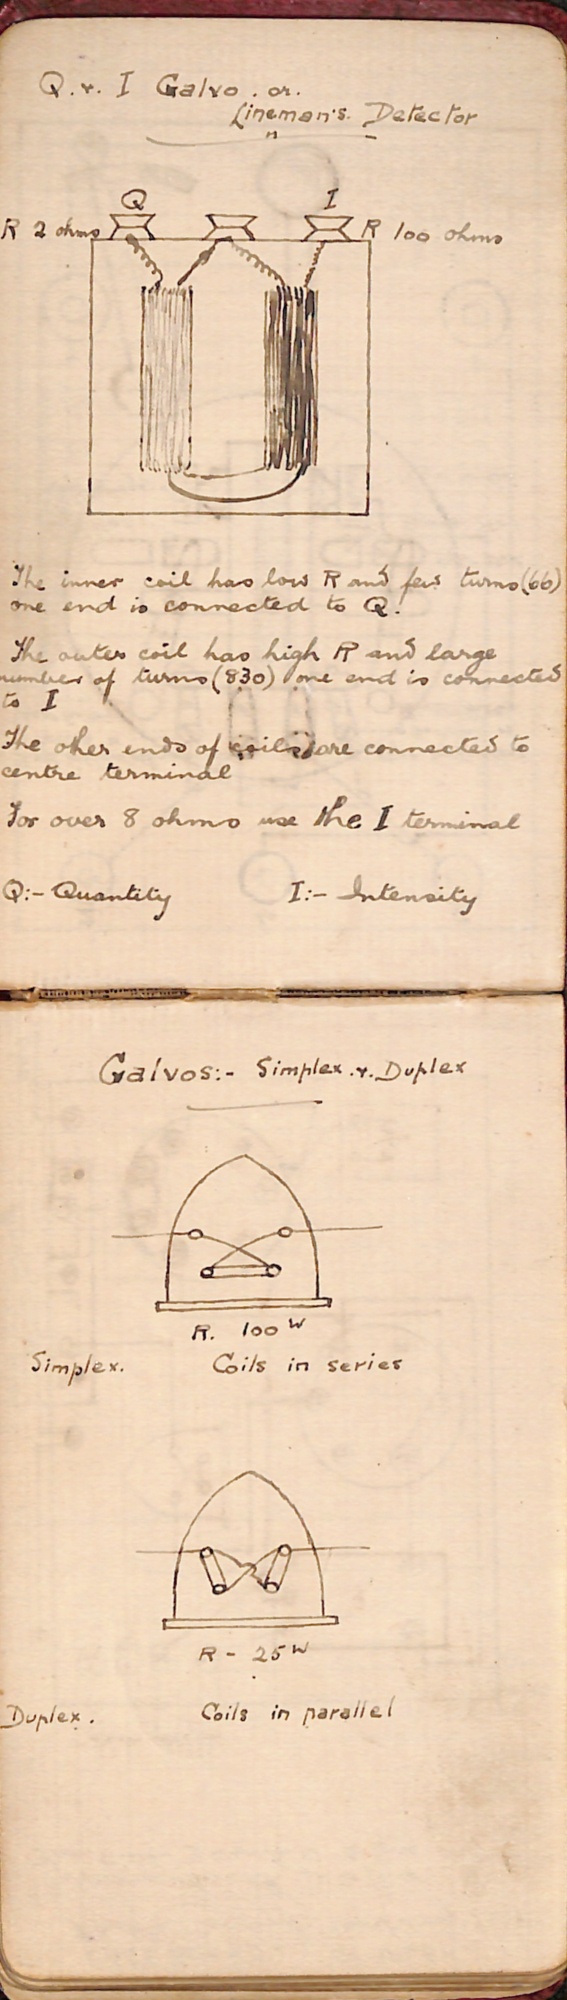 Q. & I Galvo. or.
Lineman's. Detector
Q I
R 2 ohms R 100 ohms
The inner coil has low R and few turns (66)
one end is connected to Q.
The outer coil has high R and large
number of turns (830) one end is connected
to I
The oher ends of coils are connected to
centre terminal
For over 8 ohms use the I terminal
Q:- Quantity I:- Intensity
Galvos:- Simplex. & Duplex
R. 100 W
Simplex. Coils in series
R - 25 W
Duplex. Coils in parallel